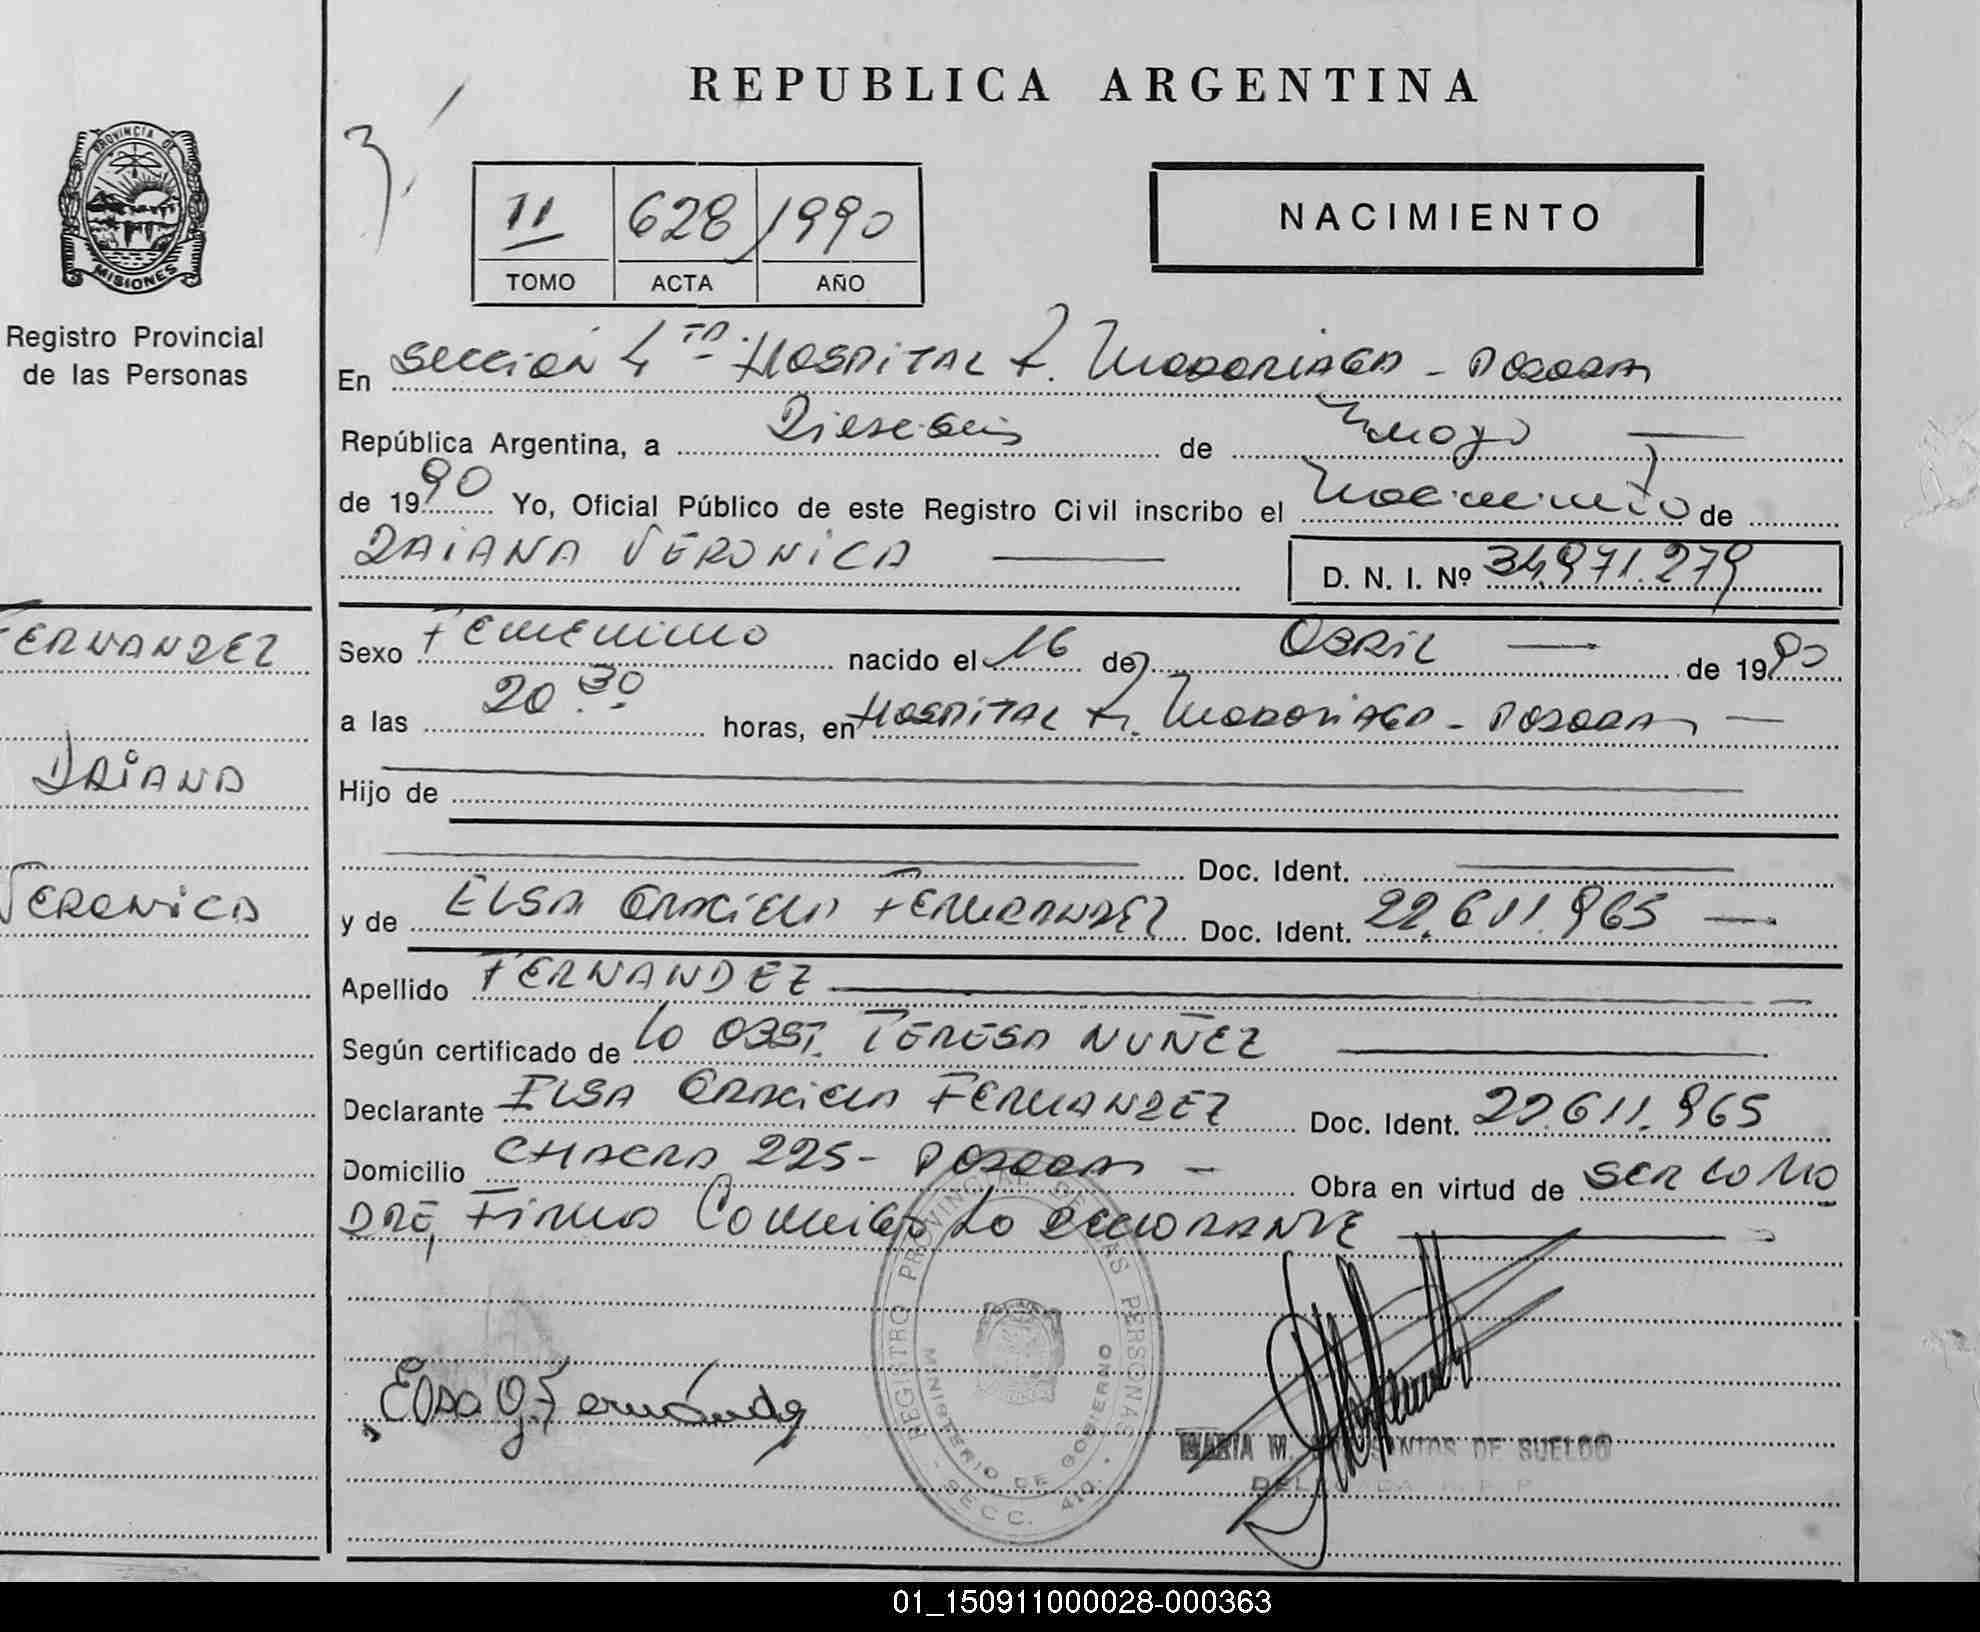 REPUBLICA ARGENTINA
PROVINCIA DE
MISIONES
Registro Provincial
de las Personas
3
II 628 1990
TOMO ACTA AÑO
NACIMIENTO
En Sección 4ta. Hospital R. Madariaga - Posadas
República Argentina, a Dieseseis de Mayo
de 1990 Yo, Oficial Público de este Registro Civil inscribo el Nacimiento de
DAIANA VERONICA
D. N. I. Nº 34.971.279
FERNANDEZ
DAIANA
VERONICA
Sexo Femenino nacido el 16 de Abril de 1990
a las 20.30 horas, en Hospital R. Madariaga - Posadas
Hijo de
Doc. Ident.
y de ELSA Graciela FERNANDEZ Doc. Ident. 22.611.965
Apellido FERNANDEZ
Según certificado de la OBST. TERESA NUÑEZ
Declarante ELSA Graciela FERNANDEZ Doc. Ident. 22.611.965
Domicilio CHACRA 225- Posadas - Obra en virtud de ser la Ma
dre, Firma Conmigo la declarante
Elsa G. Fernández
REGISTRO PROVINCIAL DE LAS PERSONAS
MINISTERIO DE GOBIERNO
SECC. 4ta.
MARIA M. SANTOS DE SUELDO
01_150911000028-000363